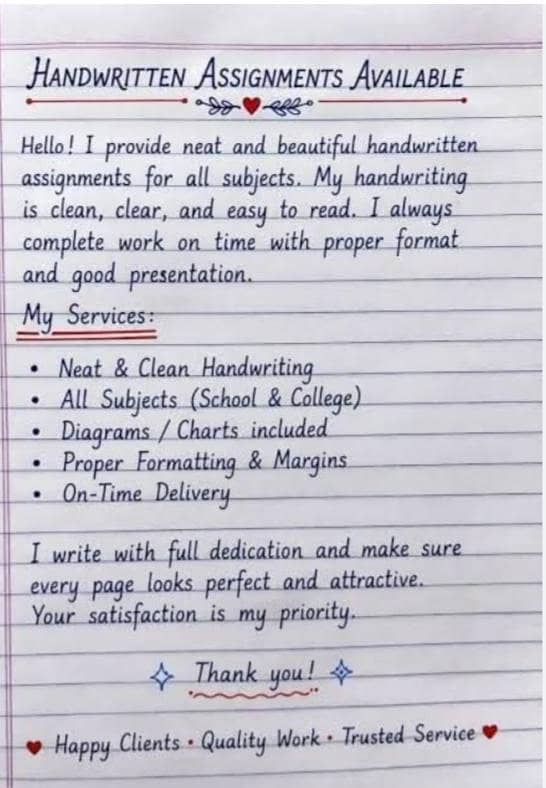 HANDWRITTEN ASSIGNMENTS AVAILABLE
Hello! I provide neat and beautiful handwritten
assignments for all subjects. My handwriting
is clean, clear, and easy to read. I always
complete work on time with proper format
and good presentation.
My Services:
• Neat & Clean Handwriting
• All Subjects (School & College)
• Diagrams / Charts included
• Proper Formatting & Margins
• On-Time Delivery
I write with full dedication and make sure
every page looks perfect and attractive.
Your satisfaction is my priority.
Thank you!
Happy Clients • Quality Work • Trusted Service